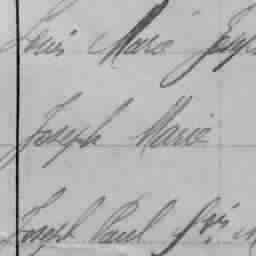 Louis Marc Josep
Joseph Marie
Joseph Paul Frs